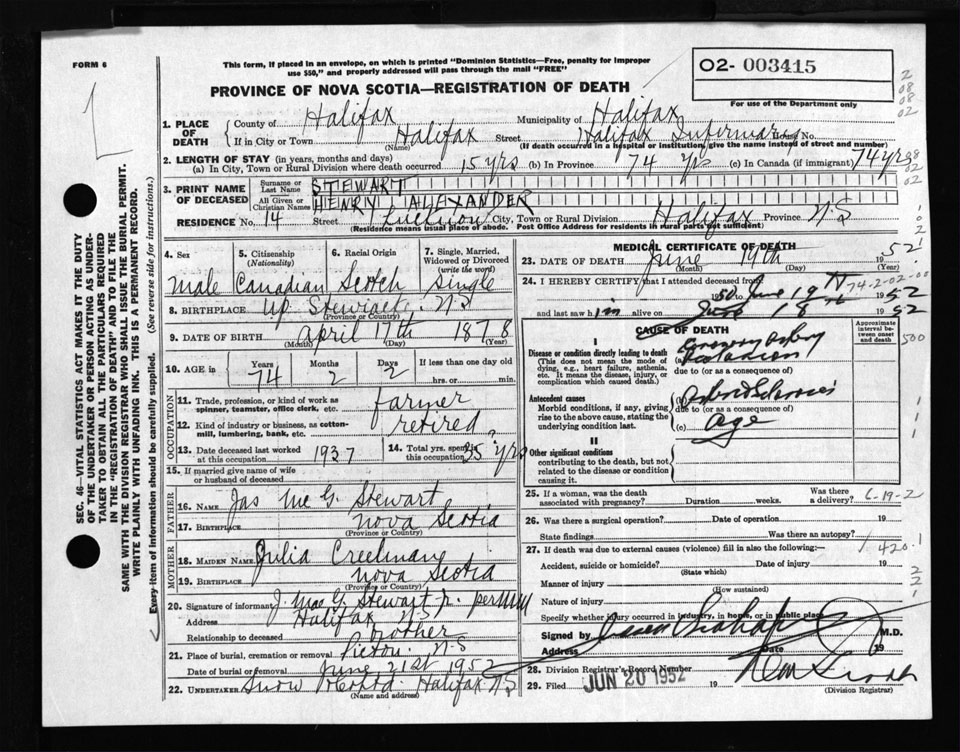 FORM 6
This form, if placed in an envelope, on which is printed "Dominion Statistics—Free, penalty for improper
use $50," and properly addressed will pass through the mail "FREE"
02- 003415
For use of the Department only
PROVINCE OF NOVA SCOTIA—REGISTRATION OF DEATH
1. PLACE OF DEATH
County of Halifax Municipality of Halifax
If in City or Town Halifax (Name) Street Halifax Infirmary House No.
(If death occurred in a hospital or institution, give the name instead of street and number)
2. LENGTH OF STAY (in years, months and days)
(a) In City, Town or Rural Division where death occurred 15 yrs (b) In Province 74 yrs (c) In Canada (if immigrant) 74 yrs
3. PRINT NAME OF DECEASED
Surname or Last Name STEWART
All Given or Christian Names HENRY ALEXANDER
RESIDENCE No. 14 Street City, Town or Rural Division Halifax Province N.S
(Residence means usual place of abode. Post Office Address for residents in rural parts not sufficient)
4. Sex
5. Citizenship (Nationality)
6. Racial Origin
7. Single, Married, Widowed or Divorced (write the word)
Male Canadian Scotch Single
8. BIRTHPLACE Up. Stewiacke N.S
(Province or Country)
9. DATE OF BIRTH April 17th 1878
(Month) (Day) (Year)
10. AGE IN Years 74 Months 2 Days 2 If less than one day old hrs. or min.
OCCUPATION
11. Trade, profession, or kind of work as spinner, teamster, office clerk, etc. farmer
12. Kind of industry or business, as cotton-mill, lumbering, bank, etc. retired
13. Date deceased last worked at this occupation 1937
14. Total yrs. spent in this occupation 25 yrs
15. If married give name of wife or husband of deceased
FATHER
16. NAME Jas Mc G. Stewart
17. BIRTHPLACE Nova Scotia
MOTHER
18. MAIDEN NAME Julia Creelman
19. BIRTHPLACE Nova Scotia
(Province or Country)
20. Signature of informant J. Mac G. Stewart Jr. per
Address Halifax N.S
Relationship to deceased brother
21. Place of burial, cremation or removal Pictou N.S
Date of burial or removal June 21st 1952
22. UNDERTAKER Snow Halifax N.S
(Name and address)
MEDICAL CERTIFICATE OF DEATH
23. DATE OF DEATH June 19th 1952
(Month) (Day) (Year)
24. I HEREBY CERTIFY that I attended deceased from
June 19th 1952
and last saw him alive on June 18 1952
74-2-02
CAUSE OF DEATH
Approximate interval between onset and death
I
Disease or condition directly leading to death
(This does not mean the mode of dying, e.g., heart failure, asthenia, etc. It means the disease, injury, or complication which caused death.)
due to (or as a consequence of)
Antecedent causes
Morbid conditions, if any, giving rise to the above cause, stating the underlying condition last.
due to (or as a consequence of)
(c) Age
II
Other significant conditions
contributing to the death, but not related to the disease or condition causing it.
25. If a woman, was the death associated with pregnancy? Duration weeks. Was there a delivery?
6-19-2
26. Was there a surgical operation? Date of operation 19
State findings Was there an autopsy?
27. If death was due to external causes (violence) fill in also the following:—
420.1
Accident, suicide or homicide? (State which) Date of injury 19
Manner of injury (How sustained)
Nature of injury
Specify whether injury occurred in industry, in home, or in public place
Signed by M.D.
Address Date 19
28. Division Registrar's Record Number
29. Filed JUN 20 1952 19
(Division Registrar)
SEC. 46—VITAL STATISTICS ACT MAKES IT THE DUTY
OF THE UNDERTAKER OR PERSON ACTING AS UNDER-
TAKER TO OBTAIN ALL THE PARTICULARS REQUIRED
IN THE "REGISTRATION OF DEATH" AND TO FILE THE
SAME WITH THE DIVISION REGISTRAR WHO SHALL ISSUE THE BURIAL PERMIT.
WRITE PLAINLY WITH UNFADING INK. THIS IS A PERMANENT RECORD.
Every item of information should be carefully supplied. (See reverse side for instructions.)